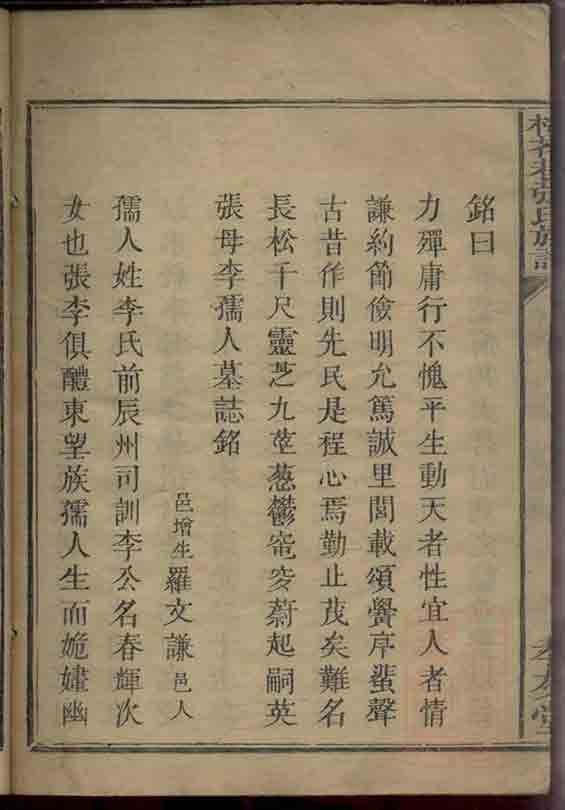 張氏族譜
銘曰
力殫庸行不愧平生動天者性宜人者情
謙約節儉明允篤誠里閭載頌黌序蜚聲
古昔作則先民是程心焉勤止茂矣難名
長松千尺靈芝九莖葱鬱窀穸蔚起嗣英
張母李孺人墓誌銘
邑增生羅文謙邑人
孺人姓李氏前辰州司訓李公名春輝次
女也張李俱醴東望族孺人生而姽嫿幽